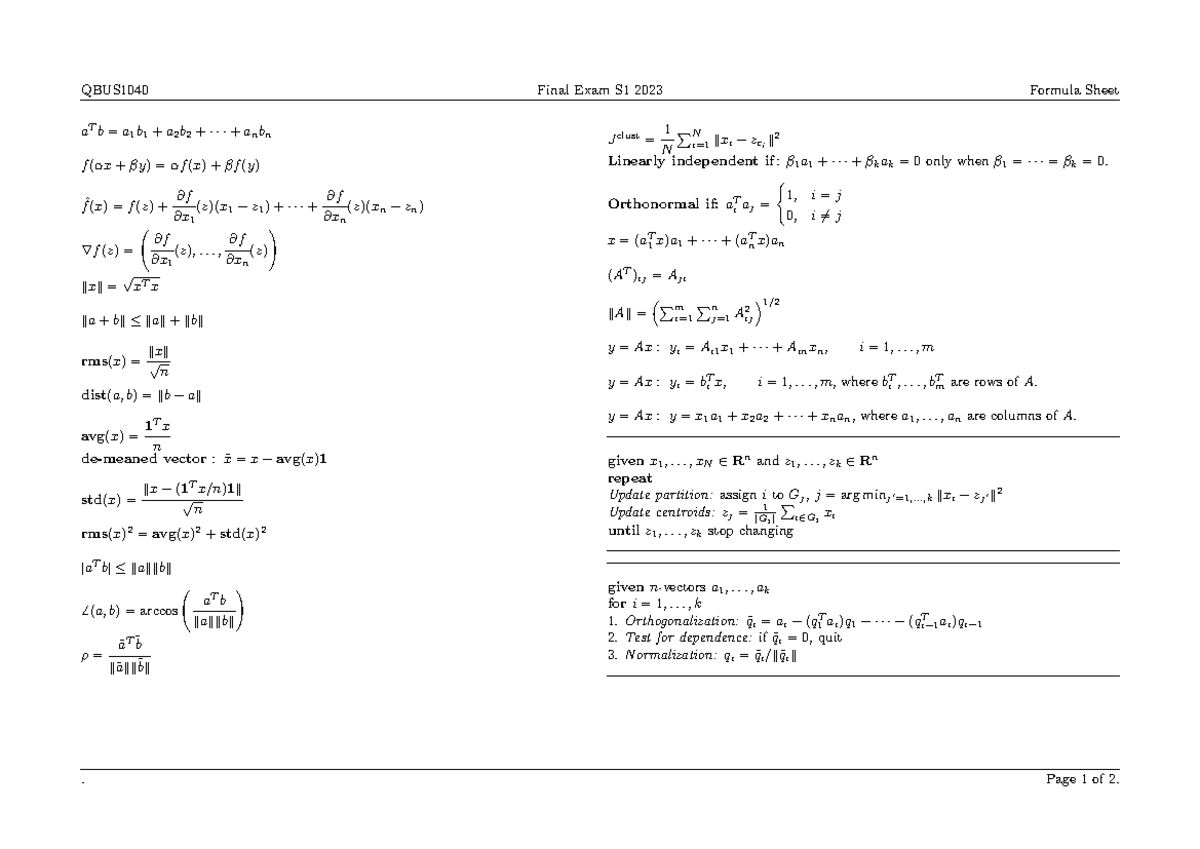 QBUS1040 Final Exam S1 2023 Formula Sheet
aᵀb = a₁b₁ + a₂b₂ + ⋯ + aₙbₙ
f(αx + βy) = αf(x) + βf(y)
f̂(x) = f(z) + ∂f/∂x₁(z)(x₁ − z₁) + ⋯ + ∂f/∂xₙ(z)(xₙ − zₙ)
∇f(z) = (∂f/∂x₁(z), …, ∂f/∂xₙ(z))
‖x‖ = √(xᵀx)
‖a + b‖ ≤ ‖a‖ + ‖b‖
rms(x) = ‖x‖/√n
dist(a, b) = ‖b − a‖
avg(x) = 1ᵀx/n
de-meaned vector : x̃ = x − avg(x)1
std(x) = ‖x − (1ᵀx/n)1‖/√n
rms(x)² = avg(x)² + std(x)²
|aᵀb| ≤ ‖a‖‖b‖
∠(a, b) = arccos(aᵀb/‖a‖‖b‖)
ρ = ãᵀb̃/‖ã‖‖b̃‖
J^clust = 1/N ∑ᵢ₌₁ᴺ ‖xᵢ − z_{cᵢ}‖²
Linearly independent if: β₁a₁ + ⋯ + βₖaₖ = 0 only when β₁ = ⋯ = βₖ = 0.
Orthonormal if: aᵢᵀaⱼ = {1, i = j
0, i ≠ j
x = (a₁ᵀx)a₁ + ⋯ + (aₙᵀx)aₙ
(Aᵀ)ᵢⱼ = Aⱼᵢ
‖A‖ = (∑ᵢ₌₁ᵐ ∑ⱼ₌₁ⁿ Aᵢⱼ²)^{1/2}
y = Ax : yᵢ = Aᵢ₁x₁ + ⋯ + Aᵢₙxₙ, i = 1, …, m
y = Ax : yᵢ = bᵢᵀx, i = 1, …, m, where b₁ᵀ, …, bₘᵀ are rows of A.
y = Ax : y = x₁a₁ + x₂a₂ + ⋯ + xₙaₙ, where a₁, …, aₙ are columns of A.
given x₁, …, x_N ∈ Rⁿ and z₁, …, zₖ ∈ Rⁿ
repeat
Update partition: assign i to Gⱼ, j = argmin_{j′=1,…,k} ‖xᵢ − z_{j′}‖²
Update centroids: zⱼ = 1/|Gⱼ| ∑_{i∈Gⱼ} xᵢ
until z₁, …, zₖ stop changing
given n-vectors a₁, …, aₖ
for i = 1, …, k
1. Orthogonalization: q̃ᵢ = aᵢ − (q₁ᵀaᵢ)q₁ − ⋯ − (qᵢ₋₁ᵀaᵢ)qᵢ₋₁
2. Test for dependence: if q̃ᵢ = 0, quit
3. Normalization: qᵢ = q̃ᵢ/‖q̃ᵢ‖
. Page 1 of 2.